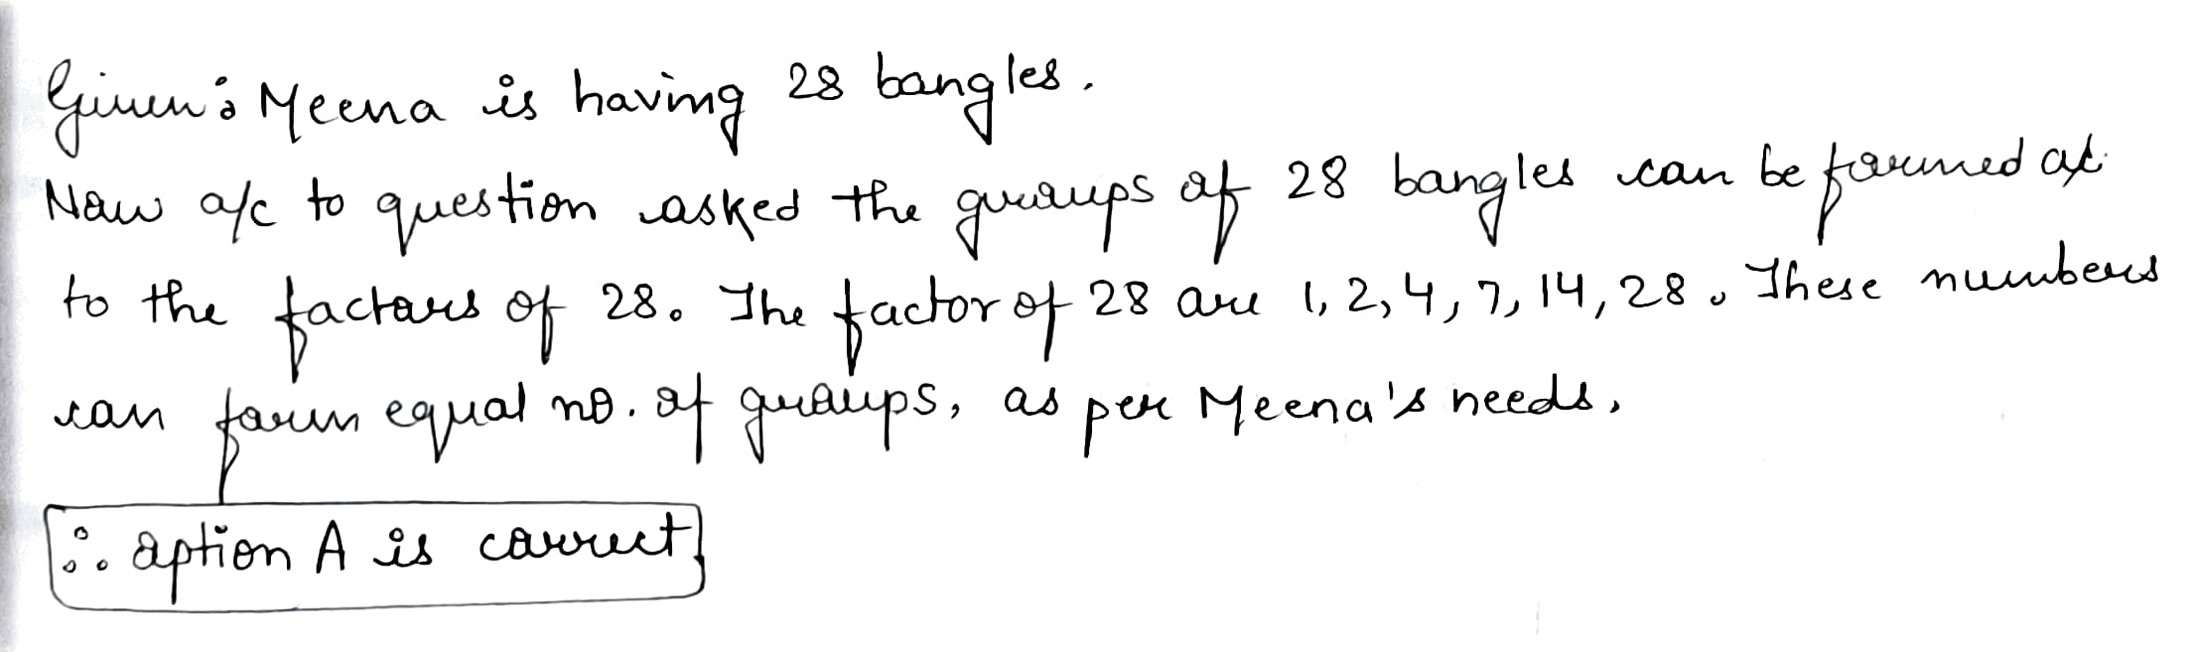 Given: Meena is having 28 bangles.
Now a/c to question asked the groups of 28 bangles can be formed at
to the factors of 28. The factor of 28 are 1, 2, 4, 7, 14, 28. These numbers
can form equal no. of groups, as per Meena's needs.
∴ option A is correct